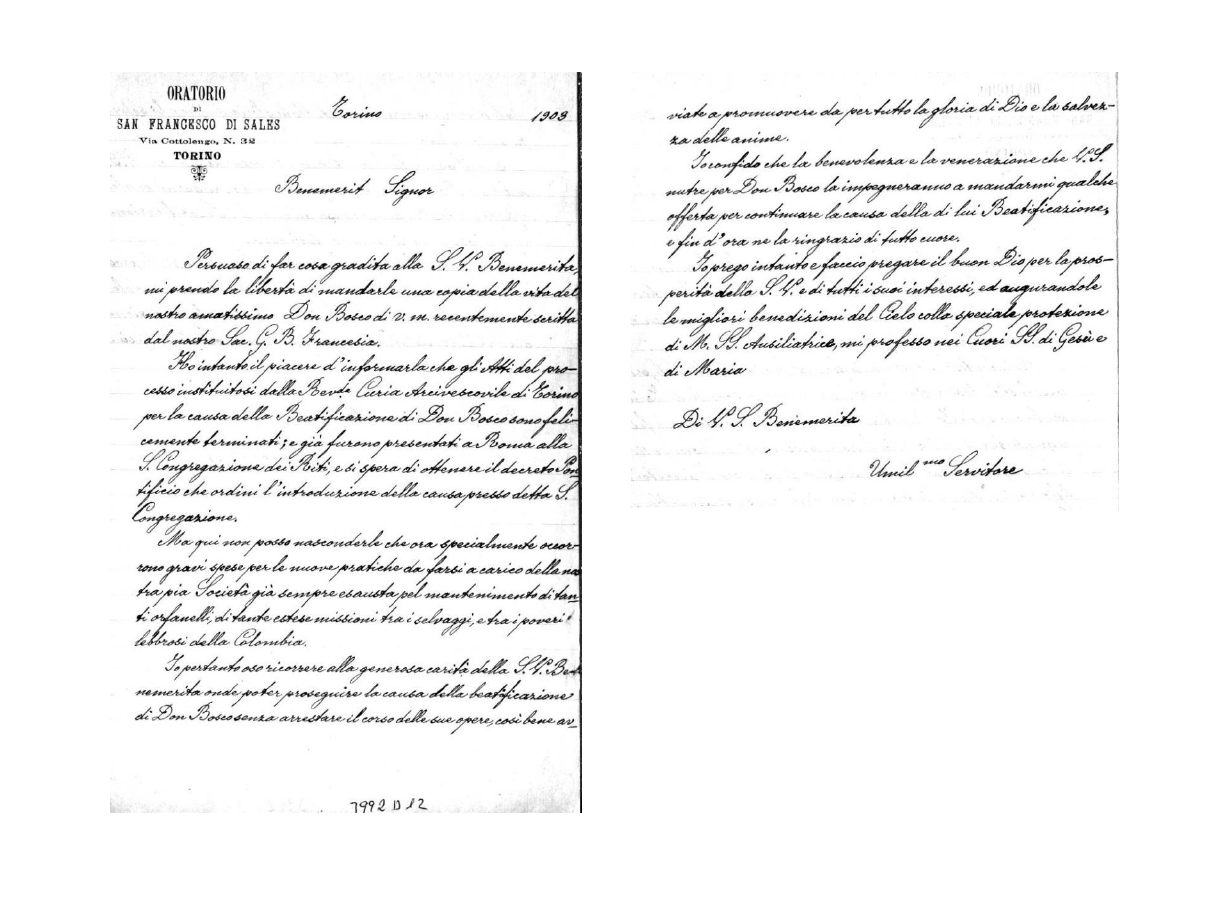 ORATORIO
DI
SAN FRANCESCO DI SALES
Via Cottolengo, N. 32
TORINO
Torino 1903
Benemerit Signor
Persuaso di far cosa gradita alla S. V. Benemerita,
mi prendo la libertà di mandarle una copia della vita del
nostro amatissimo Don Bosco di v. m. recentemente scritta
dal nostro Sac. G. B. Francesia.
Ho intanto il piacere d'informarla che gli Atti del pro-
cesso instituitosi dalla Rev.da Curia Arcivescovile di Torino
per la causa della Beatificazione di Don Bosco sono feli-
cemente terminati; e già furono presentati a Roma alla
S. Congregazione dei Riti, e si spera di ottenere il decreto Pon-
tificio che ordini l'introduzione della causa presso detta S.
Congregazione.
Ma qui non posso nasconderle che ora specialmente occor-
rono gravi spese per le nuove pratiche da farsi a carico della nos
tra pia Società già sempre esausta pel mantenimento di tan-
ti orfanelli, di tante estese missioni tra i selvaggi, e tra i poveri
lebbrosi della Colombia.
Io pertanto oso ricorrere alla generosa carità della S. V. Be-
nemerita onde poter proseguire la causa della beatificazione
di Don Bosco senza arrestare il corso delle sue opere, così bene av-
7992 D 12
viate a promuovere da per tutto la gloria di Dio e la salvez-
za delle anime.
Io confido che la benevolenza e la venerazione che V. S.
nutre per Don Bosco la impegneranno a mandarmi qualche
offerta per continuare la causa della di lui Beatificazione,
e fin d'ora ne la ringrazio di tutto cuore.
Io prego intanto e faccio pregare il buon Dio per la pros-
perità della S. V. e di tutti i suoi interessi, ed augurandole
le migliori benedizioni del Cielo colla speciale protezione
di M. SS. Ausiliatrice, mi professo nei Cuori SS. di Gesù e
di Maria
Di V. S. Benemerita
Umil mo Servitore